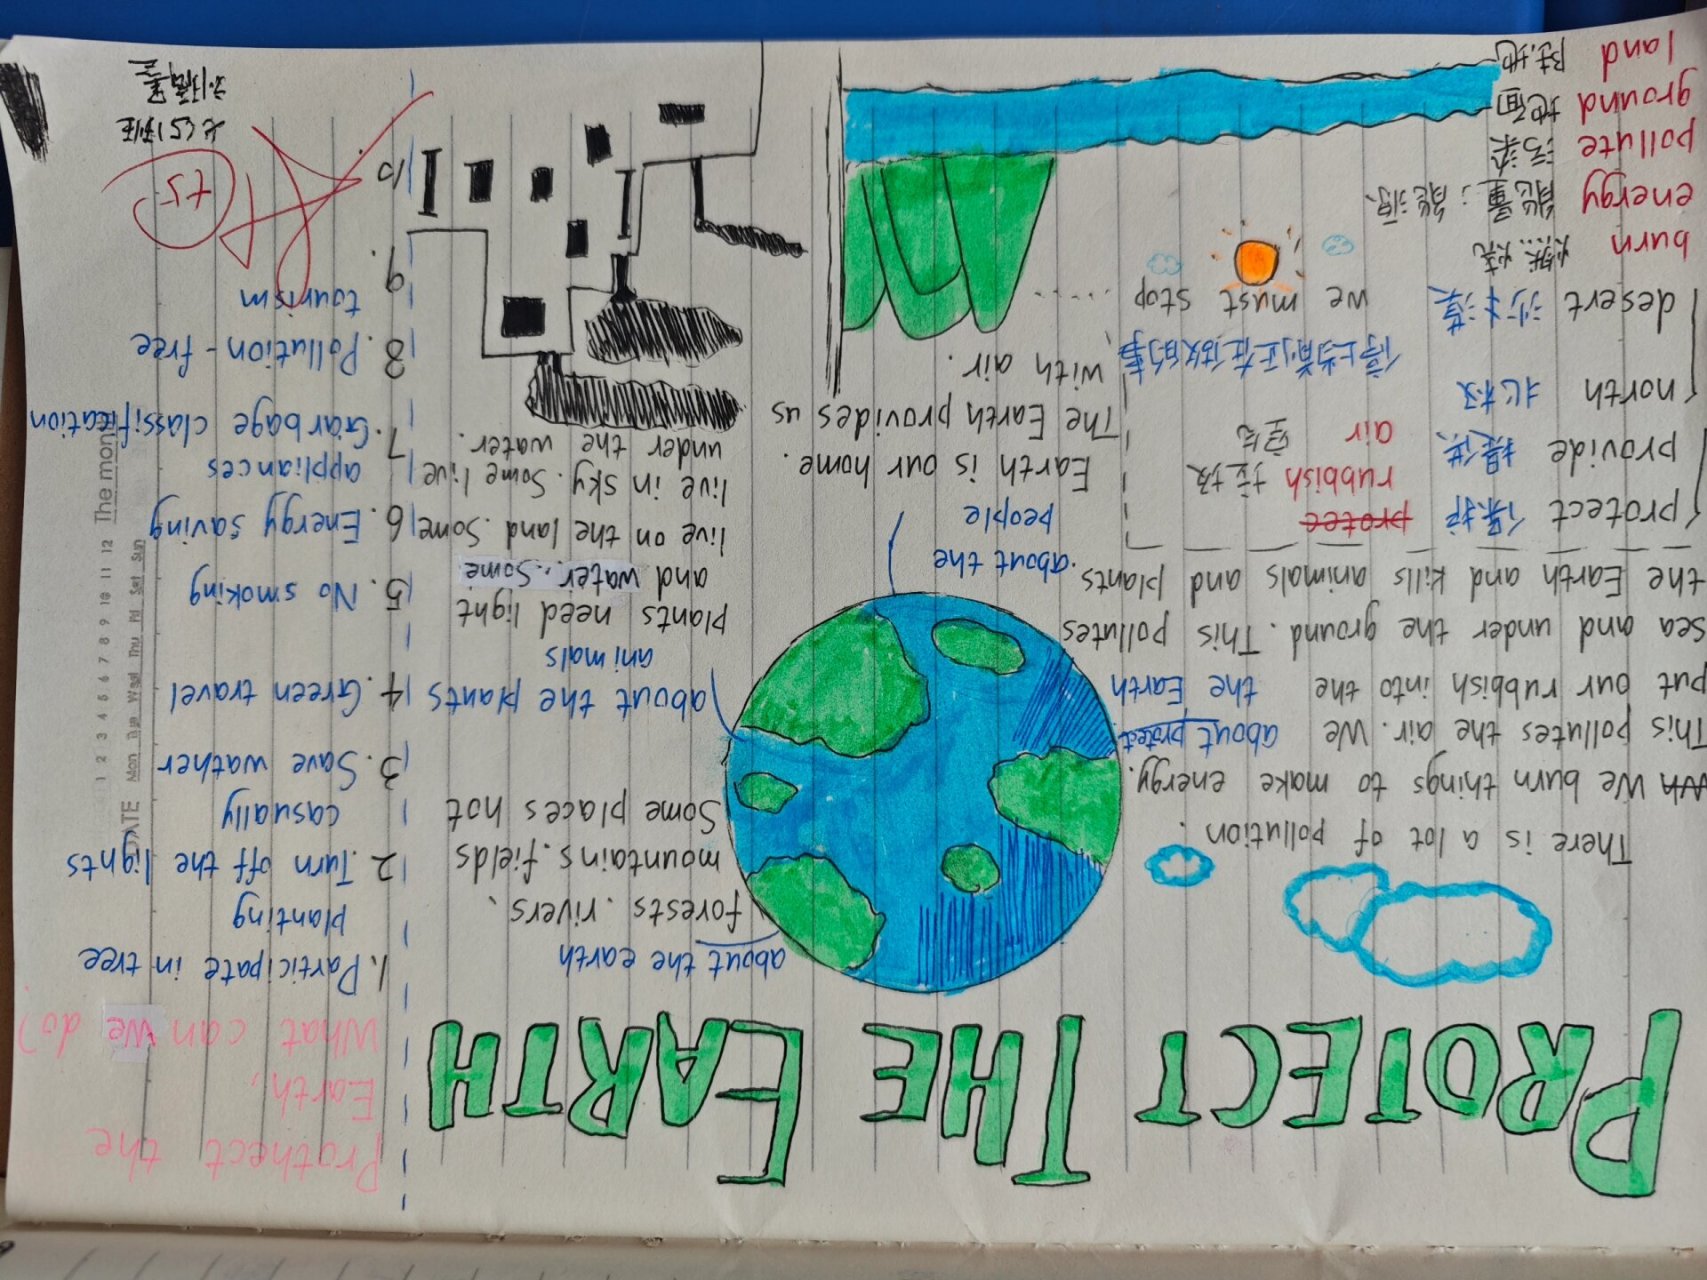 PROTECT THE EARTH
There is a lot of pollution.
We burn things to make energy.
This pollutes the air. We
put our rubbish into the
sea and under the ground. This pollutes
the Earth and kills animals and plants.
about protect
the Earth
protect 保护
provide 提供
north 北极
desert 沙漠
burn 燃烧
energy 能量；能源
pollute 污染
ground 地面
land 陆地
protec
rubbish 垃圾
air 空气
停止当前正在做的事
we must stop ......
about the earth
forests. rivers、
mountains. fields
Some places hot
about the plants
animals
plants need light
and water. Some
live on the land. Some
live in sky. Some live
under the water.
about the
people
Earth is our home.
The Earth provides us
with air.
Prothect the
Earth,
What can we do?
1. Participate in tree
planting
2. Turn off the lights
casually
3. Save wather
4. Green travel
5. No smoking
6. Energy saving
appliances
7. Garbage classification
8. Pollution-free
tourism
9.
10.
DATE
1 2 3 4 5 6 7 8 9 10 11 12 The mon
Mon Tue Wed Thu Fri Sat Sun
A+